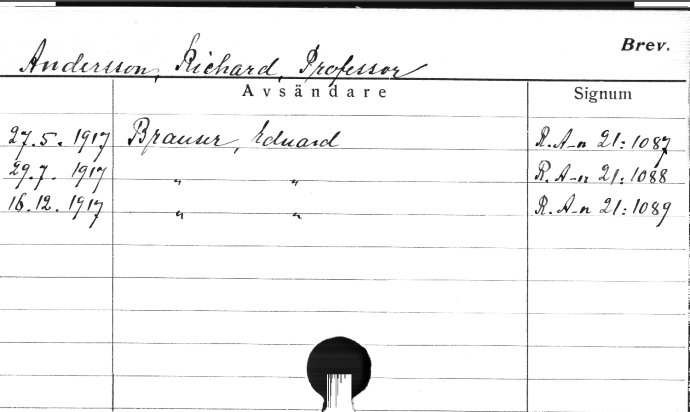 Brev.
Andersson, Richard, Professor
Avsändare Signum
27.5.1917 Brauser, Eduard R.A-n 21:1087
29.7.1917 " " R.A-n 21:1088
16.12.1917 " " R.A-n 21:1089